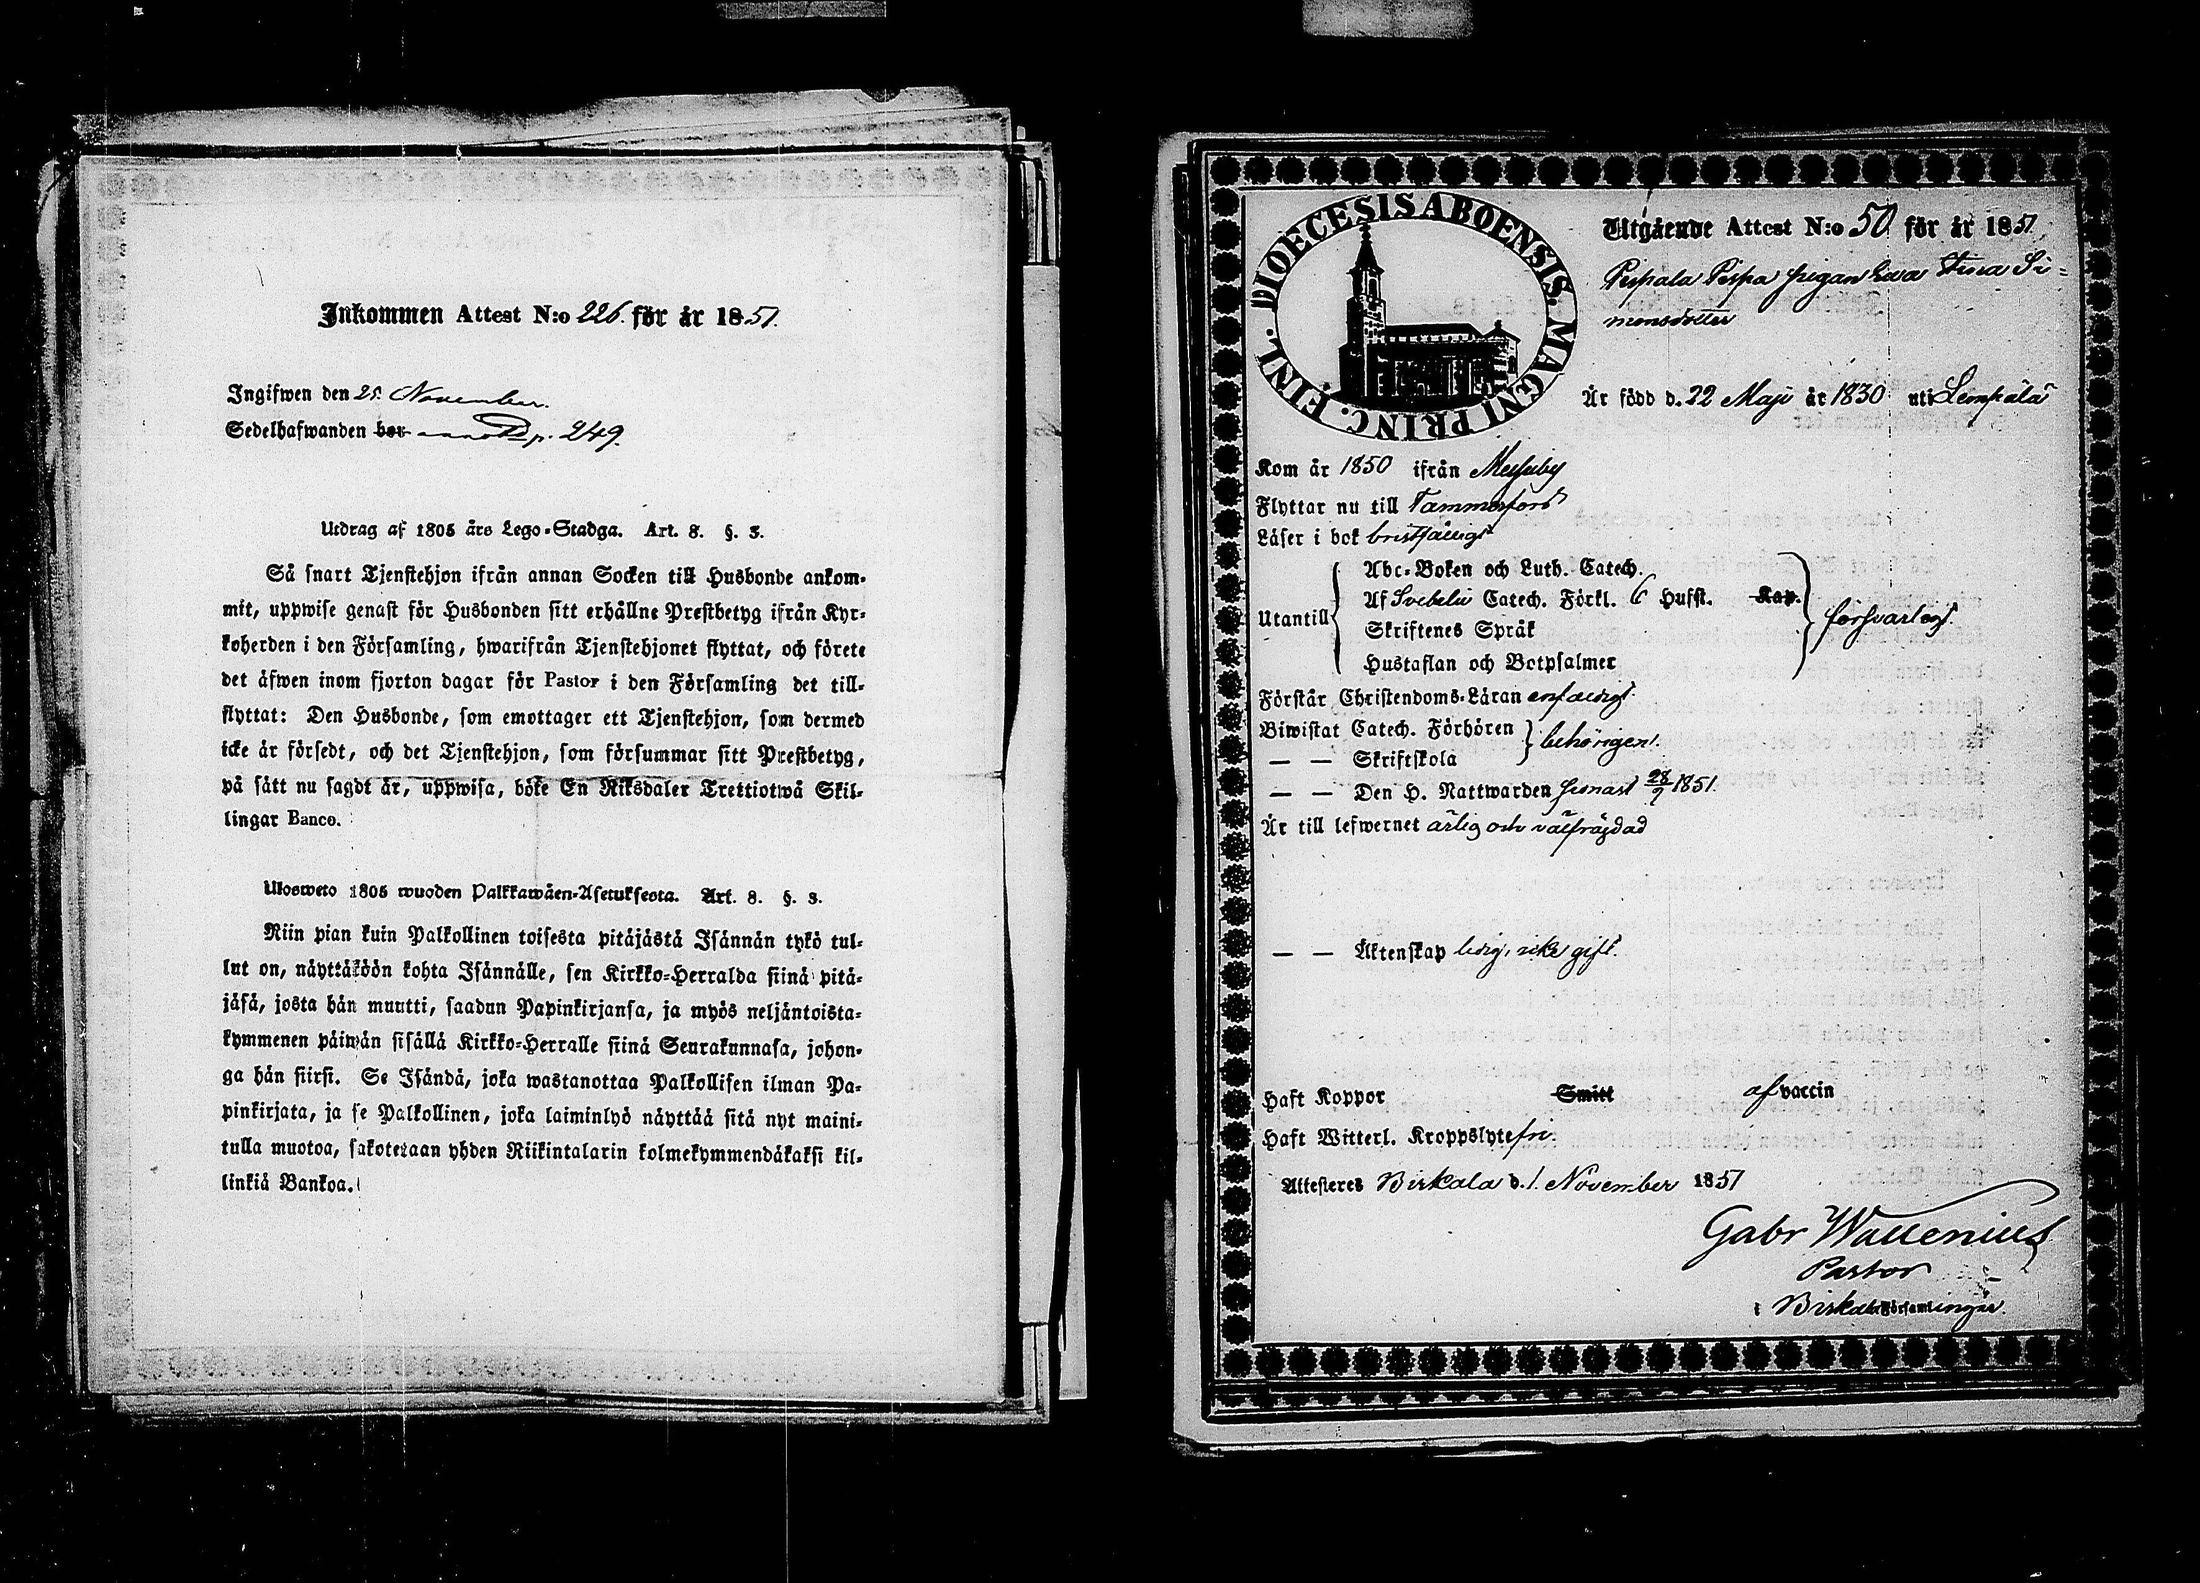 Inkommen Attest N:o 226. för år 1851.
Ingifwen den 25. November.
Sedelhafwanden bor p. 249.
Utdrag af 1805 års Lego-Stadga. Art. 8. §. 3.
Så snart Tjenstehjon ifrån annan Socken till Husbonde ankom-
mit, uppwise genast för Husbonden sitt erhållne Prestbetyg ifrån Kyr-
koherden i den Församling, hwarifrån Tjenstehjonet flyttat, och förete
det äfwen inom fjorton dagar för Pastor i den Församling det till-
flyttat: Den Husbonde, som emottager ett Tjenstehjon, som dermed
icke är försedt, och det Tjenstehjon, som försummar sitt Prestbetyg,
på sätt nu sagdt är, uppwisa, böte En Riksdaler Trettiotwå Skil-
lingar Banco.
Ulosweto 1805 wuoden Palkkawäen-Asetuksesta. Art. 8. §. 3.
Niin pian kuin Palkollinen toisesta pitäjästä Isännän tykö tul-
lut on, näyttäköön kohta Isännälle, sen Kirkko-Herralda siinä pitä-
jäsä, josta hän muutti, saadun Papinkirjansa, ja myös neljäntoista-
kymmenen päiwän sisällä Kirkko-Herralle siinä Seurakunnasa, johon-
ga hän siirsi. Se Isändä, joka wastanottaa Palkollisen ilman Pa-
pinkirjata, ja se Palkollinen, joka laiminlyö näyttää sitä nyt maini-
tulla muotoa, sakotetaan yhden Riikintalarin kolmekymmendäkaksi kil-
linkiä Bankoa.
DIOECESIS ABOENSIS. MAGNI PRINC. FINL.
Utgående Attest N:o 50 för år 1851
Pispala Pispa pigan Lewa Stina Si-
monsdotter
Är född d. 22 Maji år 1830 uti Lempälä
Kom år 1850 ifrån Messuby
Flyttar nu till Tammerfors
Läser i bok bristfälligt
Utantill
Abc-Boken och Luth. Catech.
Af Svebelii Catech. Förkl. 6 Hufst. Kap.
Skriftenes Språk
Hustaflan och Botpsalmer
försvarligt.
Förstår Christendoms-Läran enfaldigt
Biwistat Catech. Förhören
— — Skriftskola
behörigen.
— — Den H. Nattwarden senast 28/9 1851.
Är till lefwernet ärlig och välfrägdad
— — Äktenskap ledig, icke gift.
Haft Koppor Smitt af vaccin
Haft Witterl. Kroppslyte fri.
Attesteres Birkala d. 1. November 1851
Gabr Wallenius
Pastor
i Birkala Församlingar.